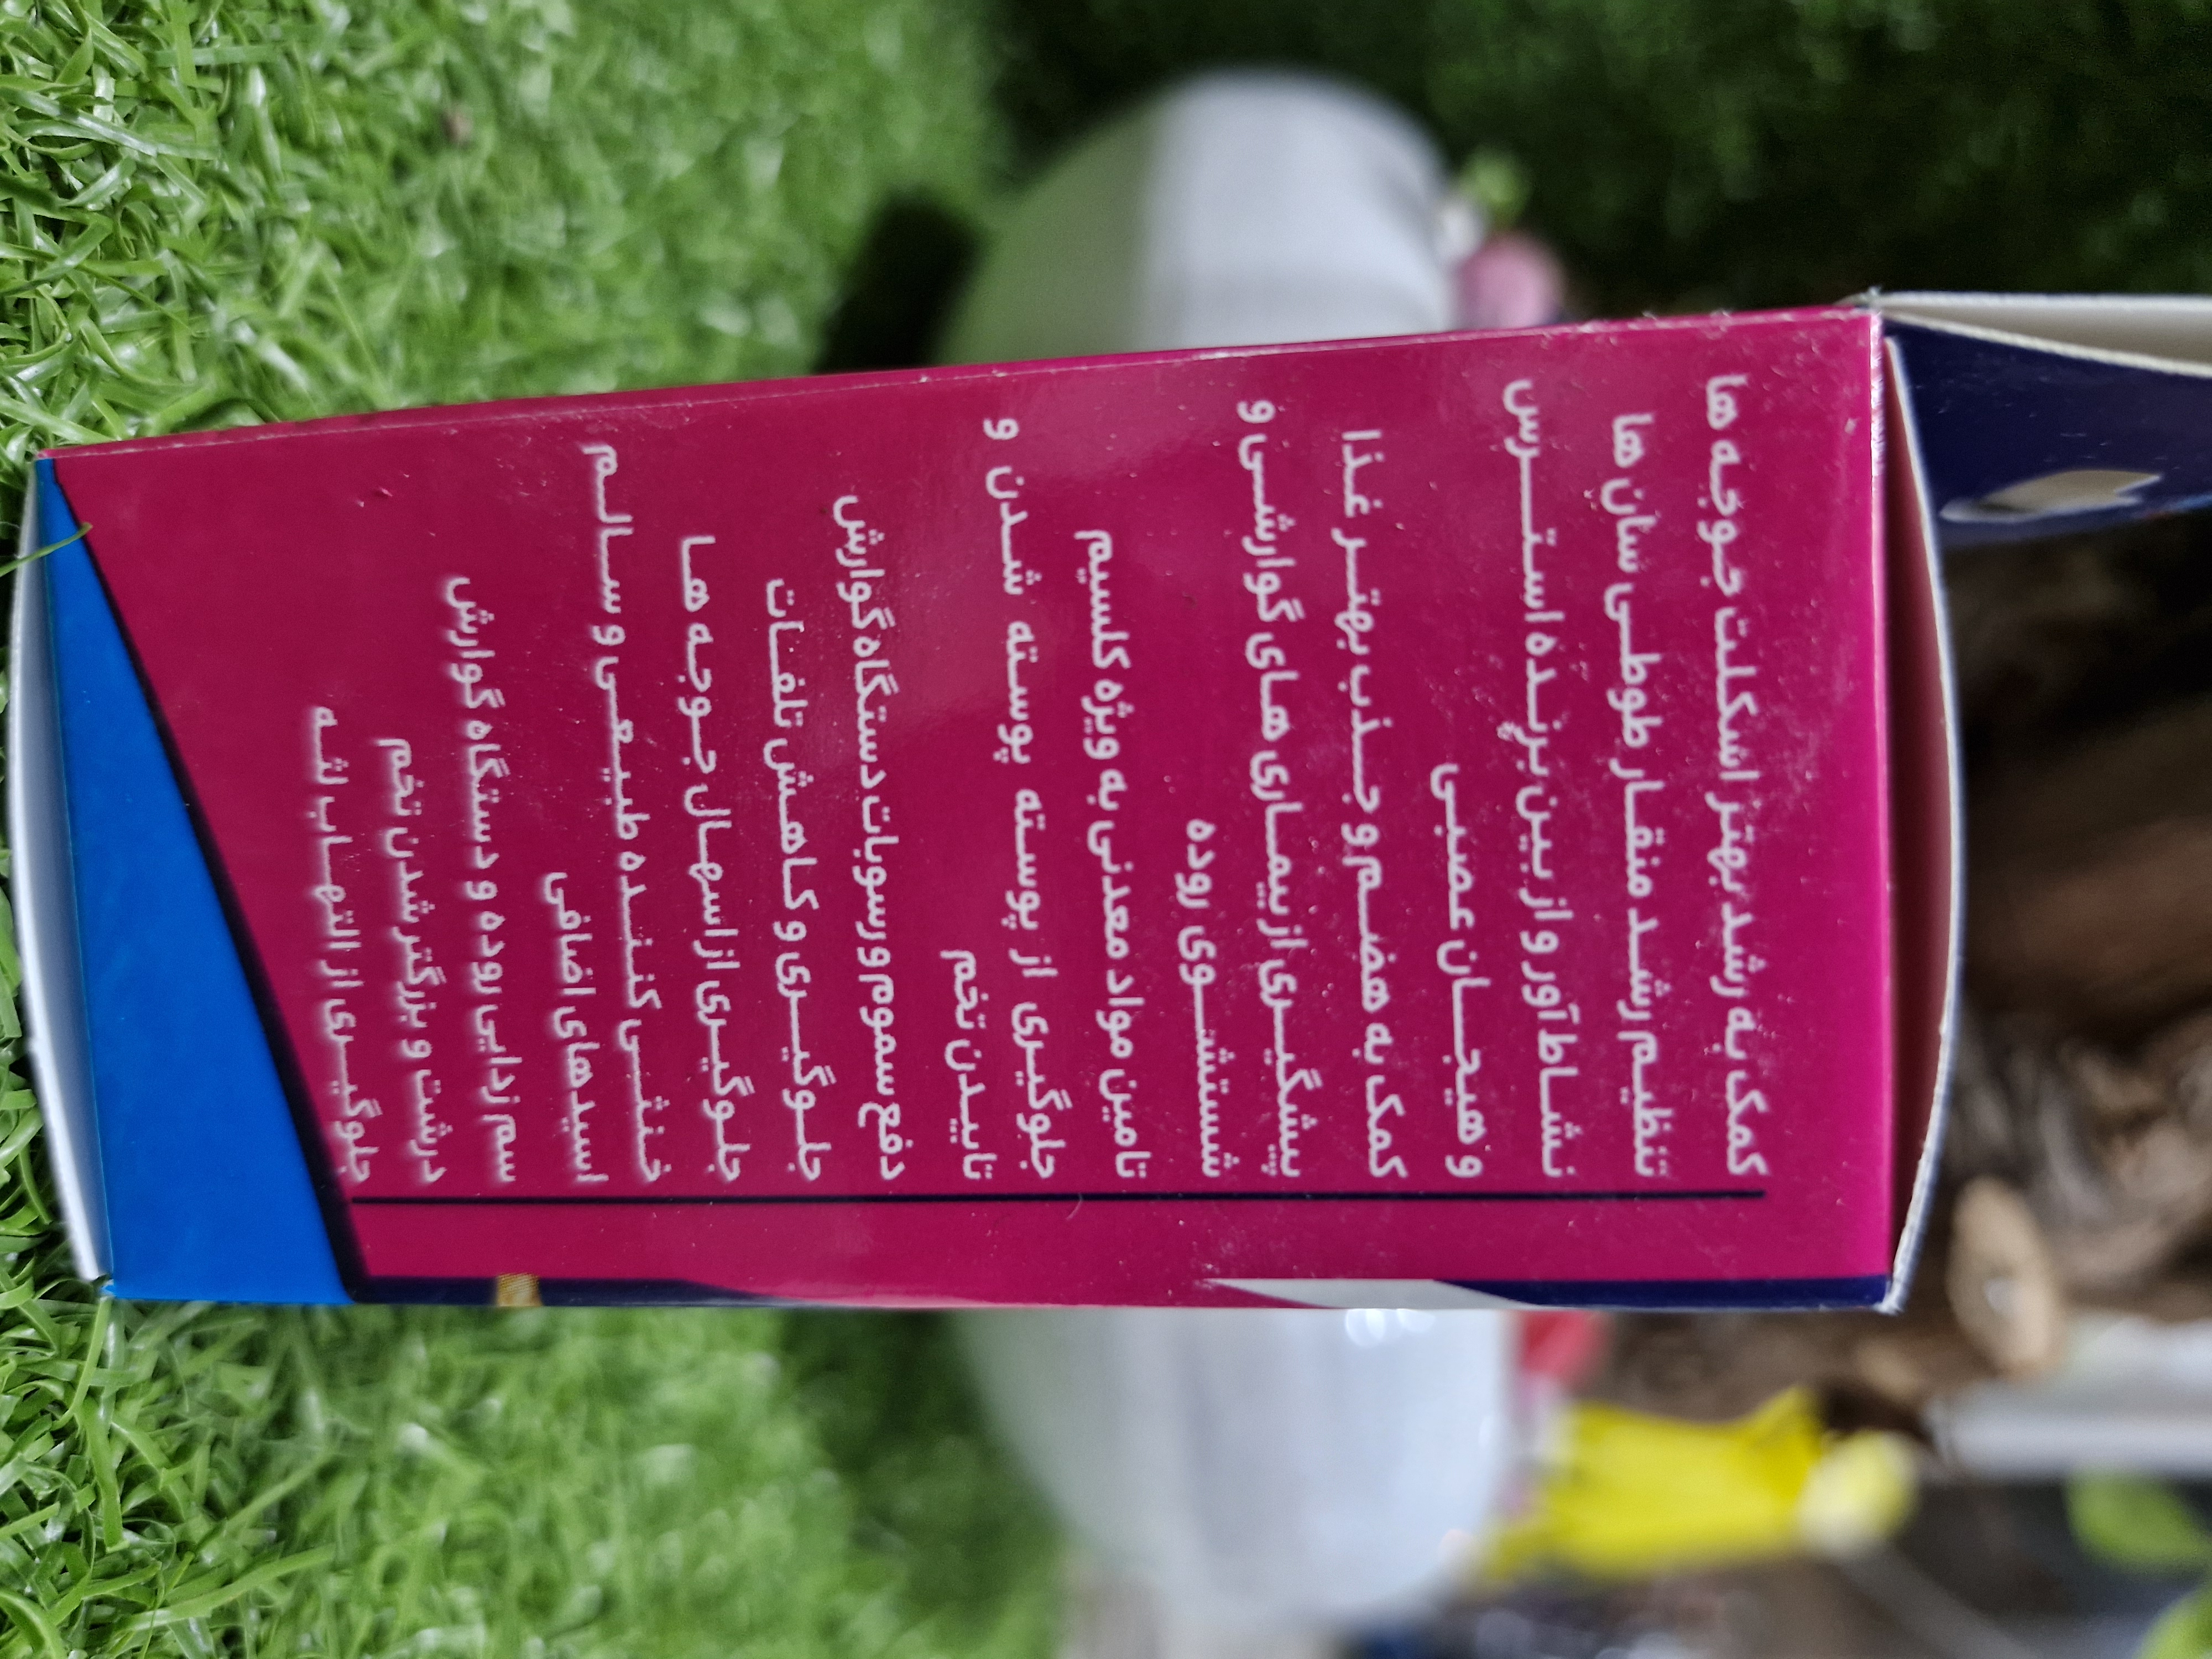 کمک به رشد بهتر اسکلت جوجه ها
تنظیم رشد منقار طوطی سان ها
نشاط آور و از بین برنده استرس
و هیجان عصبی
کمک به هضم و جذب بهتر غذا
پیشگیری از بیماری های گوارشی و
شستشوی روده
تامین مواد معدنی به ویژه کلسیم
جلوگیری از پوسته پوسته شدن و
تابیدن تخم
دفع سموم و رسوبات دستگاه گوارش
جلوگیری و کاهش تلفات
جلوگیری از اسهال جوجه ها
خنثی کننده طبیعی و سالم
اسید های اضافی
سم زدایی روده و دستگاه گوارش
درشت و بزرگتر شدن تخم
جلوگیری از التهاب لثه